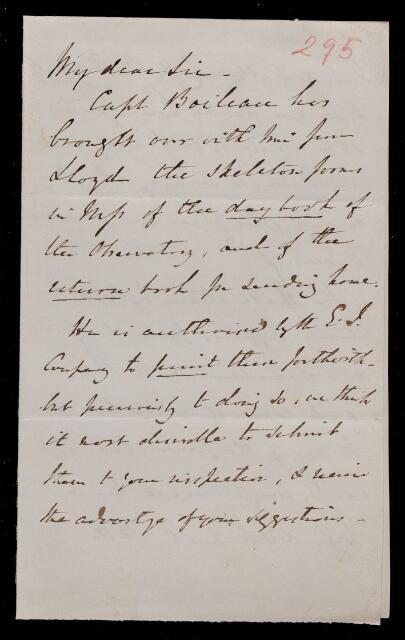 295
My dear Sir -
Capt Boileau has
brought over with him from
Lloyd the skeleton forms
in Mss of the daybook of
the Observatory, and of the
return book for sending home.
He is authorised by the E. I.
Company to print these forthwith -
but previously to doing so, we think
it most desirable to submit
them to your inspection, & receive
the advantage of your suggestions -